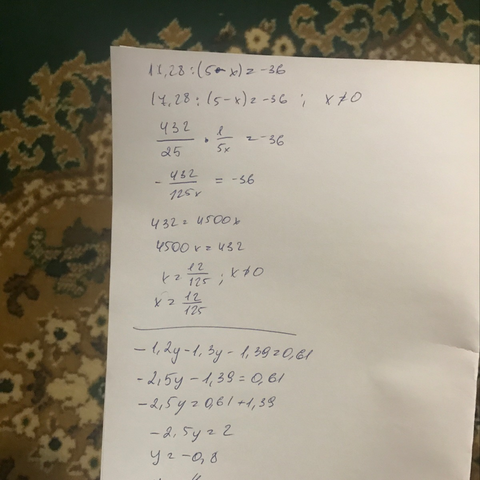 17,28:(5-x)=-36
17,28:(5-x)=-36; x≠0
432/25 · 1/5x = -36
-432/125x = -36
432=4500x
4500x=432
x=12/125; x≠0
x=12/125
-1,2y-1,3y-1,39=0,61
-2,5y-1,39=0,61
-2,5y=0,61+1,39
-2,5y=2
y=-0,8